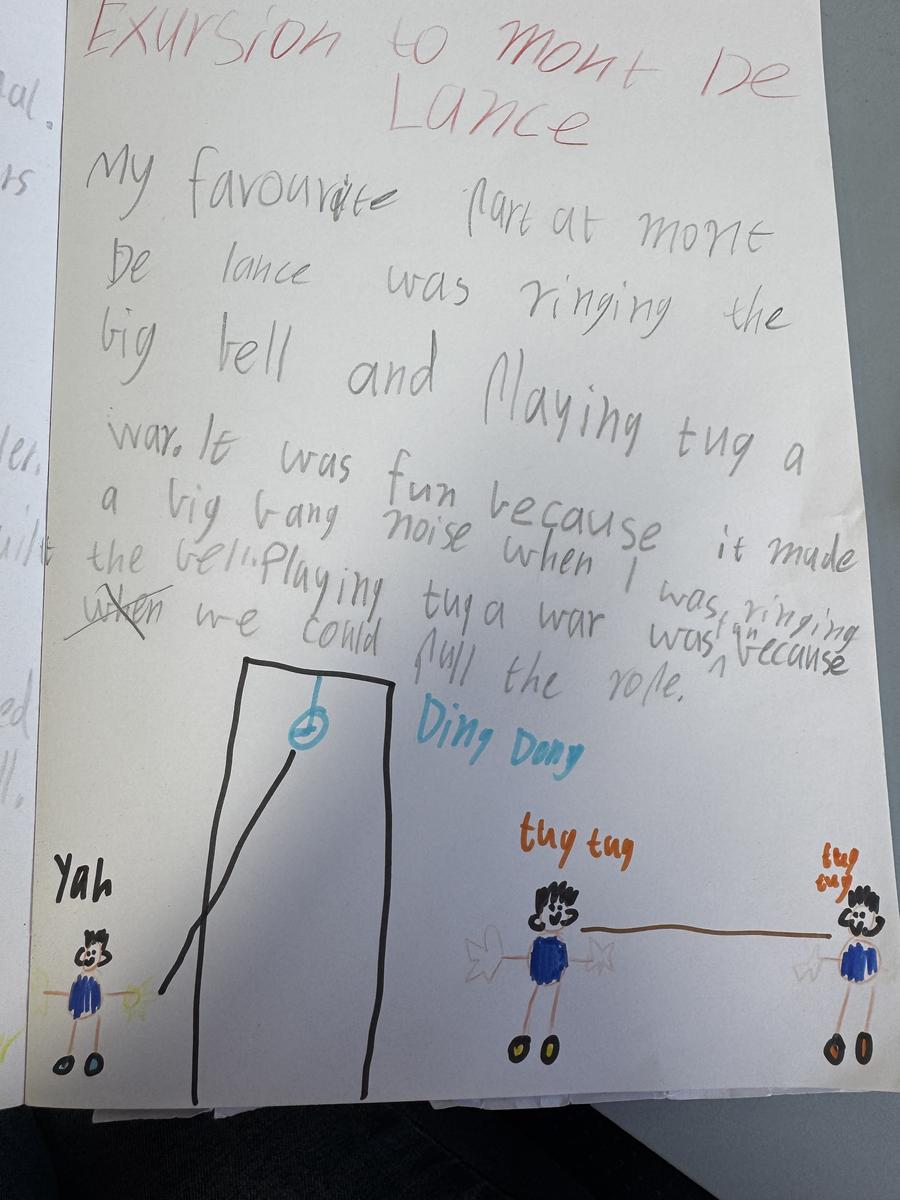 Exursion to mont De
Lance
My favourite part at mont
De lance was ringing the
big bell and Playing tug a
war. It was fun because it made
a big bang noise when I was ringing
the bell. Playing tug a war was fun because
when we could pull the rope.
Ding Dong
tug tug
tug
tug
Yah